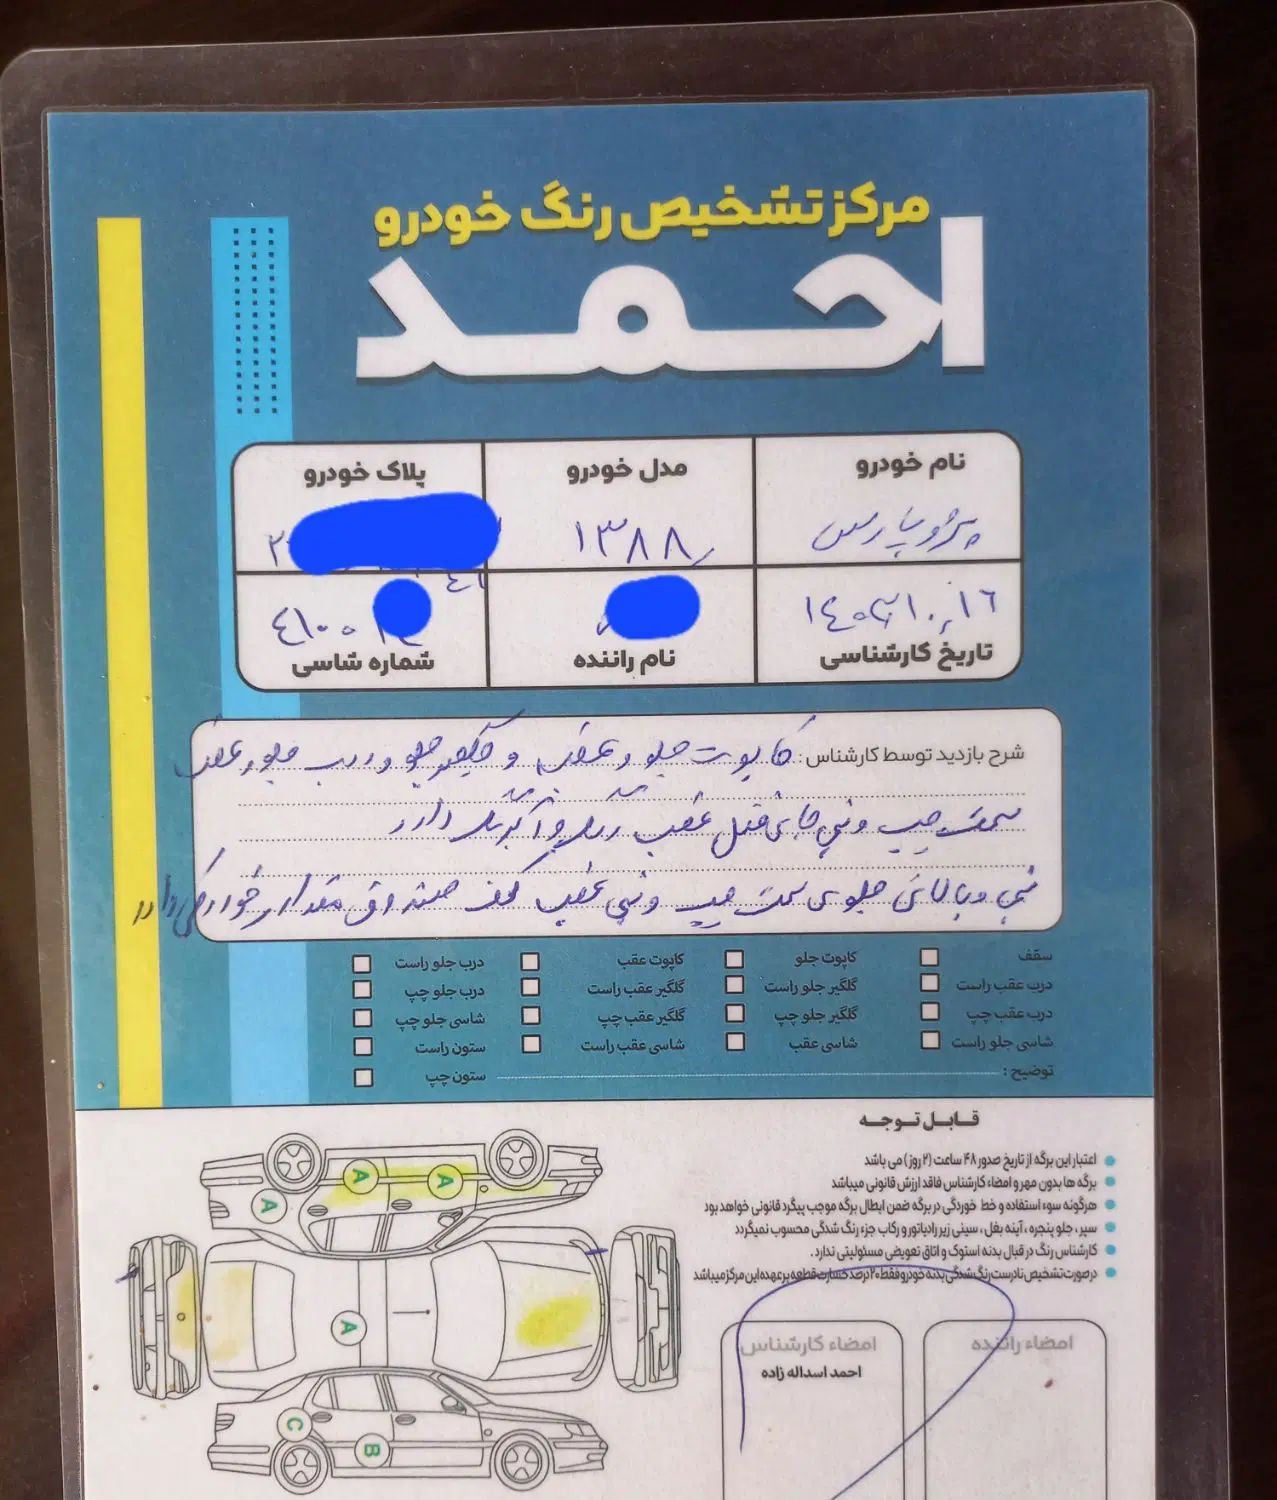 مرکز تشخیص رنگ خودرو
احمد
نام خودرو مدل خودرو پلاک خودرو
پژو پارس ۱۳۸۸ ۲
۱۶
تاریخ کارشناسی نام راننده شماره شاسی
شرح بازدید توسط کارشناس: کاپوت جلو و عقب و گلگیر جلو و درب جلو و عقب
سمت چپ و سینی جای قفل عقب رنگ و آبرنگ دارد
سینی و بالای جلوی سمت چپ و سینی عقب کف صندوق مقدار خوردگی دارد
سقف کاپوت جلو کاپوت عقب درب جلو راست
درب عقب راست گلگیر جلو راست گلگیر عقب راست درب جلو چپ
درب عقب چپ گلگیر جلو چپ گلگیر عقب چپ شاسی جلو چپ
شاسی جلو راست شاسی عقب شاسی عقب راست ستون راست
توضیح: ستون چپ
قابل توجه
اعتبار این برگه از تاریخ صدور ۴۸ ساعت (۲ روز) می باشد
برگه ها بدون مهر و امضاء کارشناس فاقد ارزش قانونی میباشد
هرگونه سوء استفاده و خط خوردگی در برگه ضمن ابطال برگه موجب پیگرد قانونی خواهد بود
سپر، جلو پنجره، آینه بغل، سینی زیر رادیاتور و رکاب جزء رنگ شدگی محسوب نمیگردد
کارشناس رنگ در قبال بدنه استوک و اتاق تعویضی مسئولیتی ندارد.
در صورت تشخیص نادرست رنگ شدگی بدنه خودرو فقط ۲۰ درصد خسارت قطعه بر عهده این مرکز میباشد
امضاء راننده امضاء کارشناس
احمد اسداله زاده
A
A
A
A
C
B